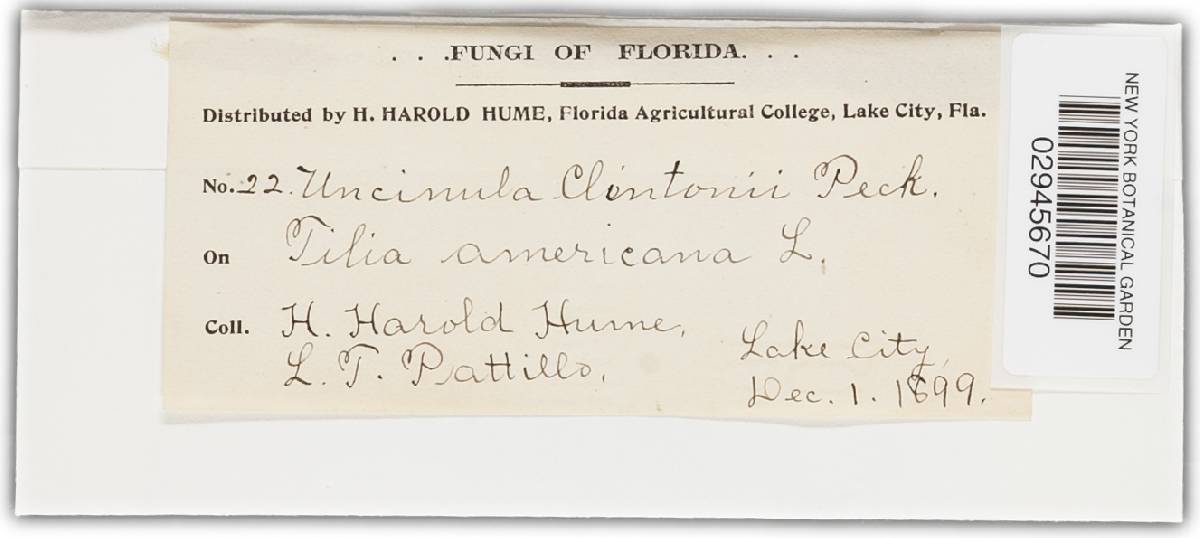 . . .FUNGI OF FLORIDA. . .
Distributed by H. HAROLD HUME, Florida Agricultural College, Lake City, Fla.
No. 22. Uncinula Clintonii Peck.
On Tilia americana L.
Coll. H. Harold Hume,
L. T. Pattillo.
Lake City,
Dec. 1. 1899.
NEW YORK BOTANICAL GARDEN
02945670